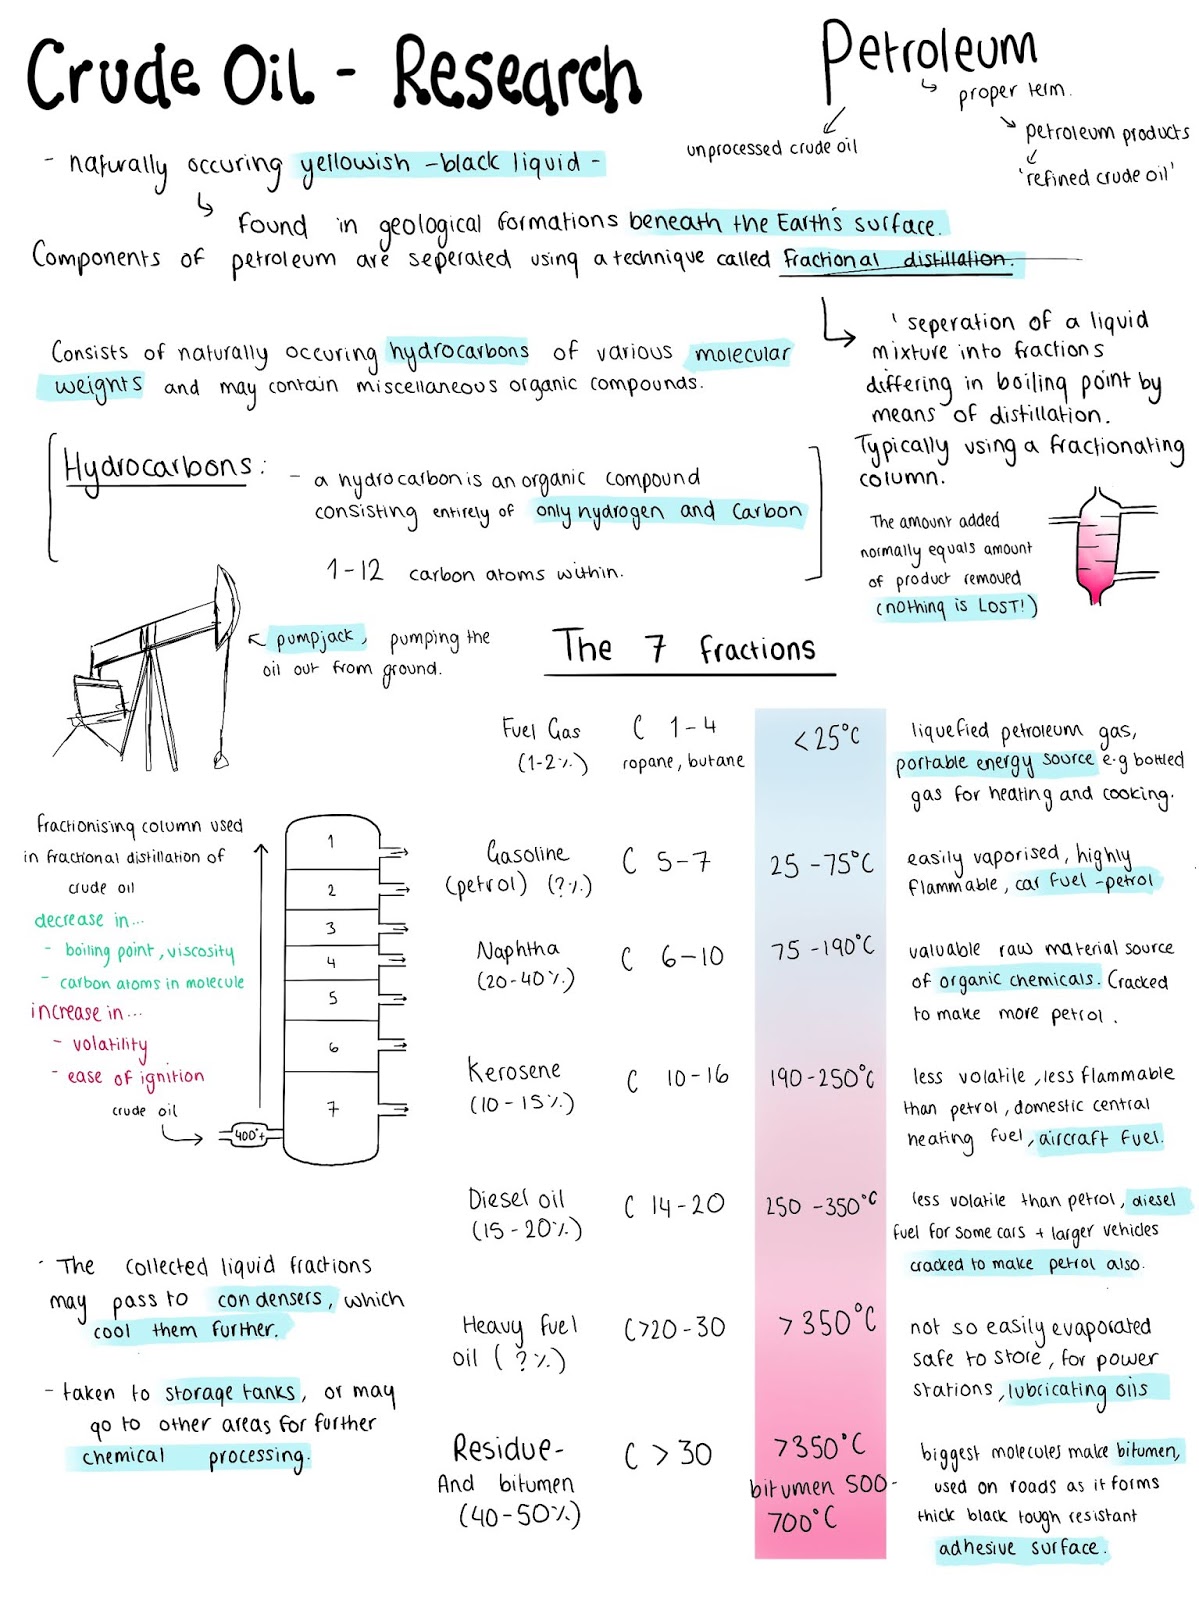 Crude Oil - Research
Petroleum
↳ proper term.
unprocessed crude oil
petroleum products
'refined crude oil'
- naturally occuring yellowish -black liquid -
found in geological formations beneath the Earth's surface.
Components of petroleum are seperated using a technique called fractional distillation.
' seperation of a liquid
mixture into fractions
differing in boiling point by
means of distillation.
Typically using a fractionating
column.
Consists of naturally occuring hydrocarbons of various molecular
weights and may contain miscellaneous organic compounds.
Hydrocarbons:
- a hydrocarbon is an organic compound
consisting entirely of only hydrogen and Carbon
1-12 carbon atoms within.
The amount added
normally equals amount
of product removed
(nothing is LOST!)
pumpjack, pumping the
oil out from ground.
The 7 fractions
Fuel Gas C 1-4 <25°C liquefied petroleum gas,
(1-2%) ropane, butane portable energy source e.g bottled
gas for heating and cooking.
Gasoline C 5-7 25 -75°C easily vaporised, highly
(petrol) (?%) flammable, car fuel -petrol
Naphtha C 6-10 75 -190°C valuable raw material source
(20-40%) of organic chemicals. Cracked
to make more petrol.
Kerosene C 10-16 190-250°C less volatile, less flammable
(10-15%) than petrol, domestic central
heating fuel, aircraft fuel.
Diesel oil C 14-20 250 -350°C less volatile than petrol, diesel
(15-20%) fuel for some cars + larger vehicles
cracked to make petrol also.
Heavy fuel C>20-30 >350°C not so easily evaporated
oil (?%) safe to store, for power
stations, lubricating oils
Residue- C >30 >350°C biggest molecules make bitumen,
And bitumen bitumen 500- used on roads as it forms
(40-50%) 700°C thick black tough resistant
adhesive surface.
fractionising column used
in fractional distillation of
crude oil
decrease in...
- boiling point, viscosity
- carbon atoms in molecule
increase in...
- volatility
- ease of ignition
crude oil
400°+
1
2
3
4
5
6
7
- The collected liquid fractions
may pass to condensers, which
cool them further.
- taken to storage tanks, or may
go to other areas for further
chemical processing.